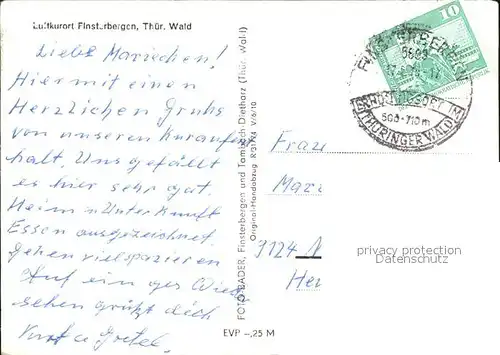 Luftkurort Finsterbergen, Thür. Wald
Liebe Mariechen!
Hiermit einen
Herzlichen Gruhs
von unseren Kuraufent
halt. Uns gefällt
es hier sehr gut.
Heim u Unterkunft
Essen ausgezeichnet
gehen viel spazieren
Auf ein ges Wied
sehen grüßt dich
Kurt u Gretel.
FOTO-BÄDER, Finsterbergen und Tambach-Dietharz (Thür. Wald)
Original-Handabzug
EVP -,25 M
10
FINSTERBERGEN
ERHOLUNGSORT IM
500-710 m
THÜRINGER WALD
Frau
Mar
9124
He
privacy protection
Datenschutz